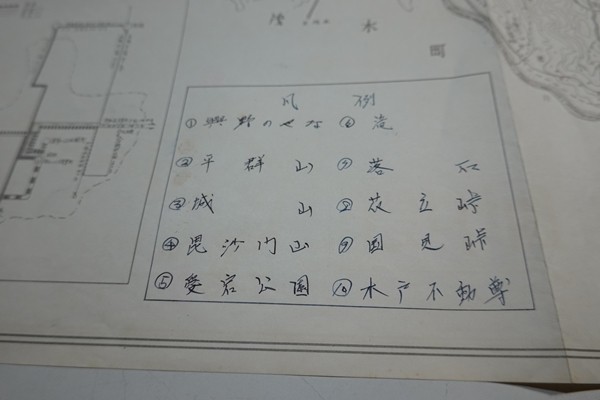 水
凡例
①與野のせな ⑥滝
②平群山 ⑦落石
③城山 ⑧茂立峠
④毘沙門山 ⑨国見峠
⑤愛宕公園 ⑩木戸不動尊